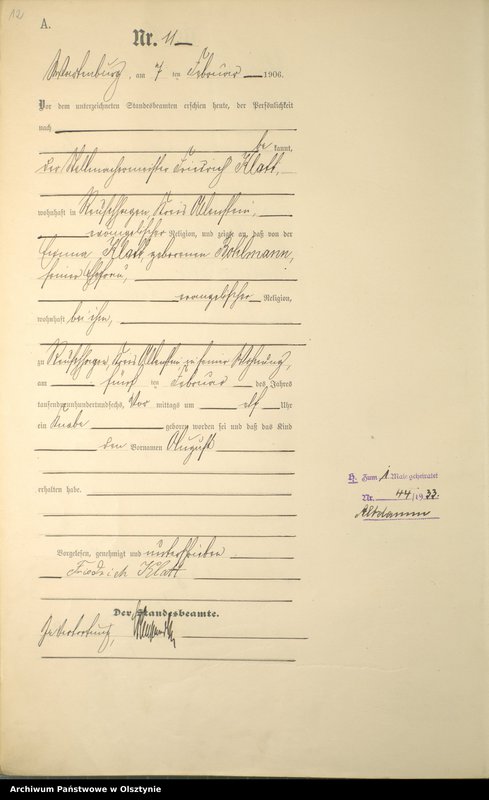 12
A.
Nr. 11
Wartenburg, am 7 ten Februar 1906.
Vor dem unterzeichneten Standesbeamten erschien heute, der Persönlichkeit
nach
be kannt,
der Stellmachermeister Friedrich Klatt,
wohnhaft in Kreis Allenstein,
evangelischer Religion, und zeigte an, daß von der
Emma Klatt, geborenen Bohlmann,
seiner Ehefrau,
evangelischer Religion,
wohnhaft bei ihm,
zu Kreis Allenstein in seiner Wohnung,
am fünf ten Februar des Jahres
tausendneunhundertundsechs, Vor mittags um elf Uhr
ein Knabe geboren worden sei und daß das Kind
den Vornamen August
erhalten habe.
Vorgelesen, genehmigt und unterschrieben
Friedrich Klatt
Der Standesbeamte.
In Vertretung,
H. Zum 1. Male geheiratet
Nr. 44/1933
Altdamm
Archiwum Państwowe w Olsztynie